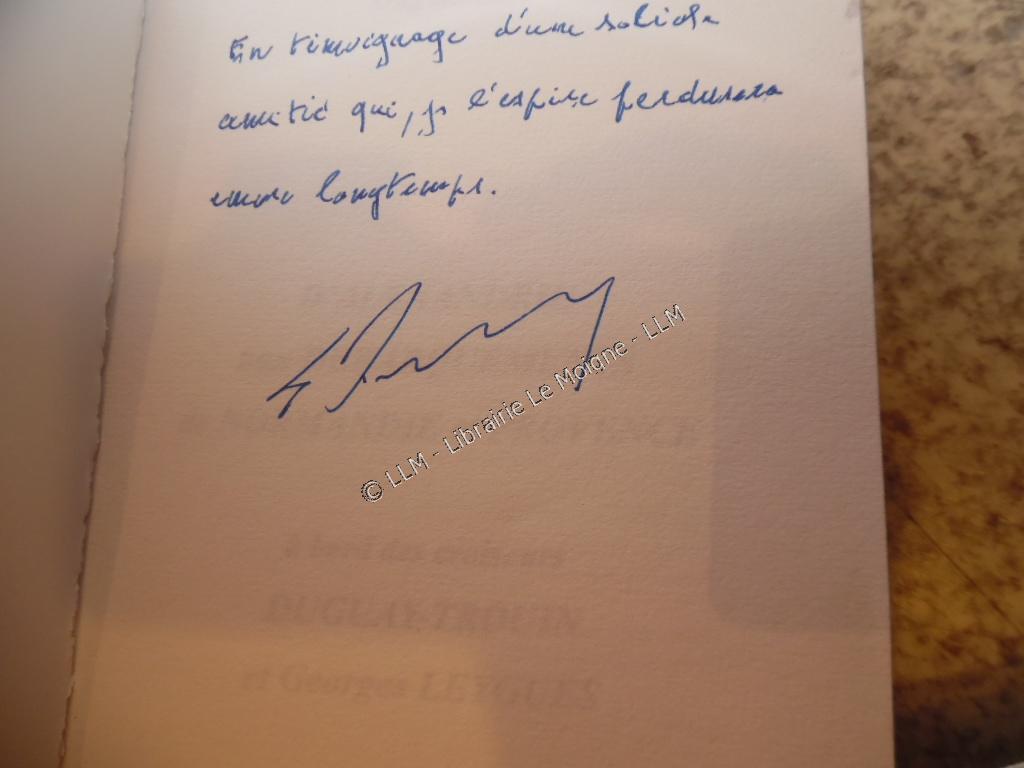 En témoignage d'une solide
amitié qui, je l'espère perdurera
encore longtemps.
© LLM - Librairie Le Moigne - LLM
de NORMANDIE PROVENCE
à bord des croiseurs
DUGUAY-TROUIN
et Georges LEYGUES